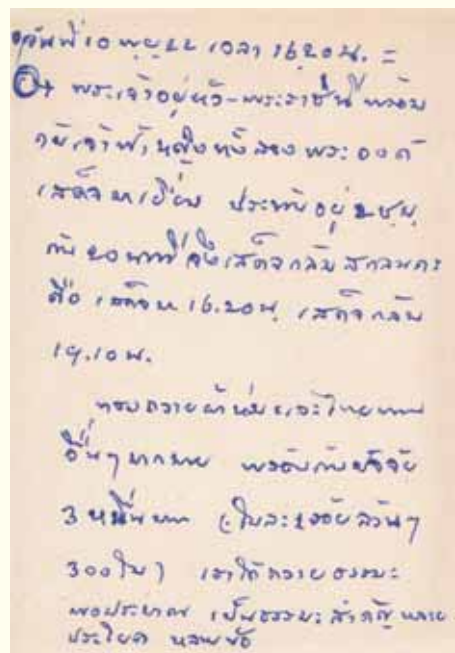 วันที่ 10 พ.ย. 22 เวลา 16.20 น. =
พระเจ้าอยู่หัว-พระราชินี พร้อม
กับเจ้าฟ้าหญิงทั้งสองพระองค์
เสด็จมาเยี่ยม ประทับอยู่ 2 ช.ม.
กับ 20 นาที จึงเสด็จกลับสกลนคร
คือ เสด็จมา 16.20 น. เสด็จกลับ
19.10 น.
ทรงถวายผ้าห่มและไทยทาน
อื่นๆ มากมาย พร้อมกับปัจจัย
3 หมื่นบาท (ใบละร้อยล้วนๆ
300 ใบ) เราได้ถวายธรรมะ
พอประมาณ เป็นธรรมะสำคัญหลาย
ประโยค หลายข้อ